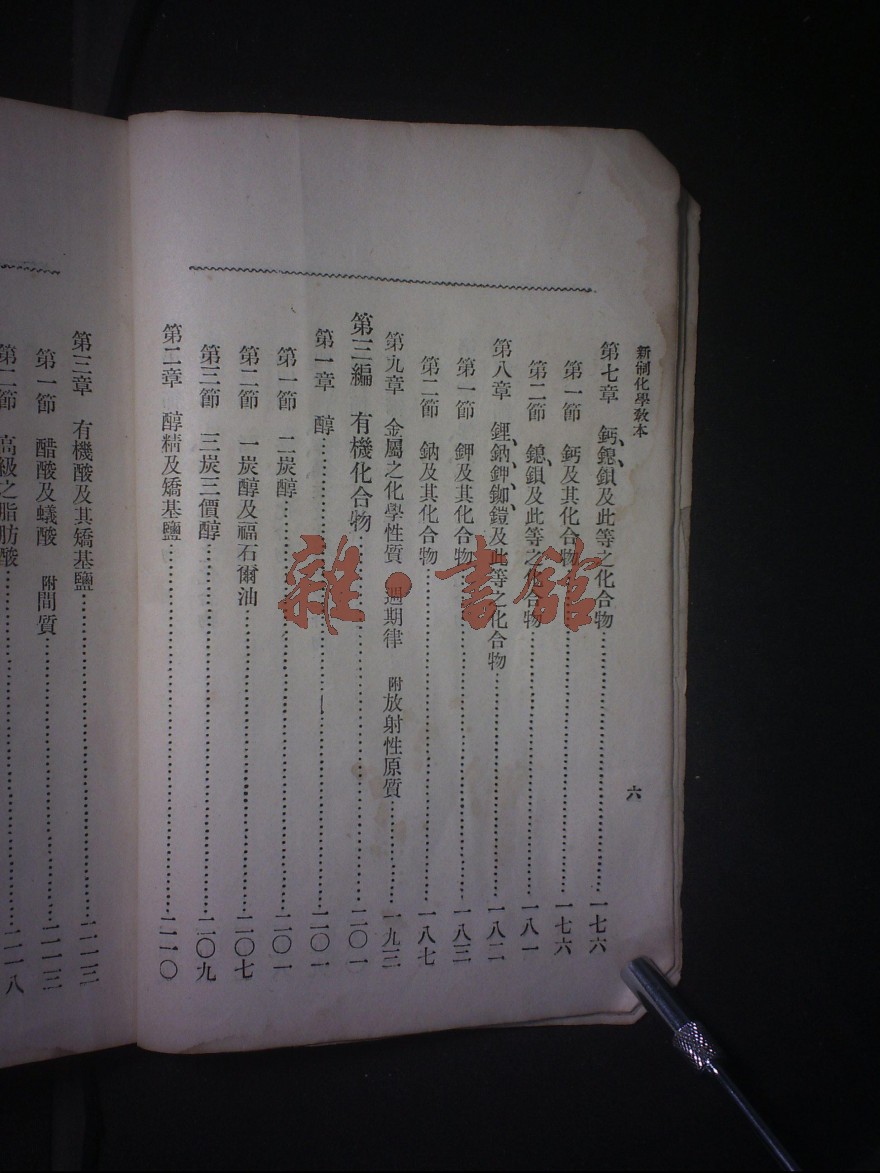 新制化學教本
六
第七章 鈣、鍶、鋇及此等之化合物……一七六
第一節 鈣及其化合物……一七六
第二節 鍶、鋇及此等之化合物……一八一
第八章 鋰、鈉、鉀、銣、鎧及此等之化合物……一八二
第一節 鉀及其化合物……一八三
第二節 鈉及其化合物……一八七
第九章 金屬之化學性質 週期律 附放射性原質……一九三
第三編 有機化合物……二〇一
第一章 醇……二〇一
第一節 二炭醇……二〇一
第二節 一炭醇及福石爾油……二〇七
第三節 三炭三價醇……二〇九
第二章 醇精及矯基鹽……二一〇
第三章 有機酸及其矯基鹽……二一三
第一節 醋酸及蟻酸 附間質……二一三
第二節 高級之脂肪酸……二一八
雜·書館